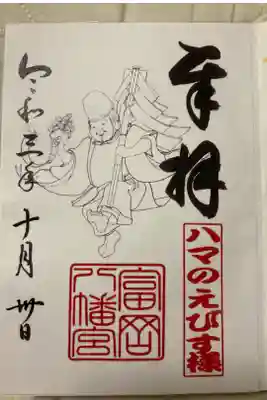 奉拝
ハマのえびす様
富岡
八幡宮
令和三年十月卅日